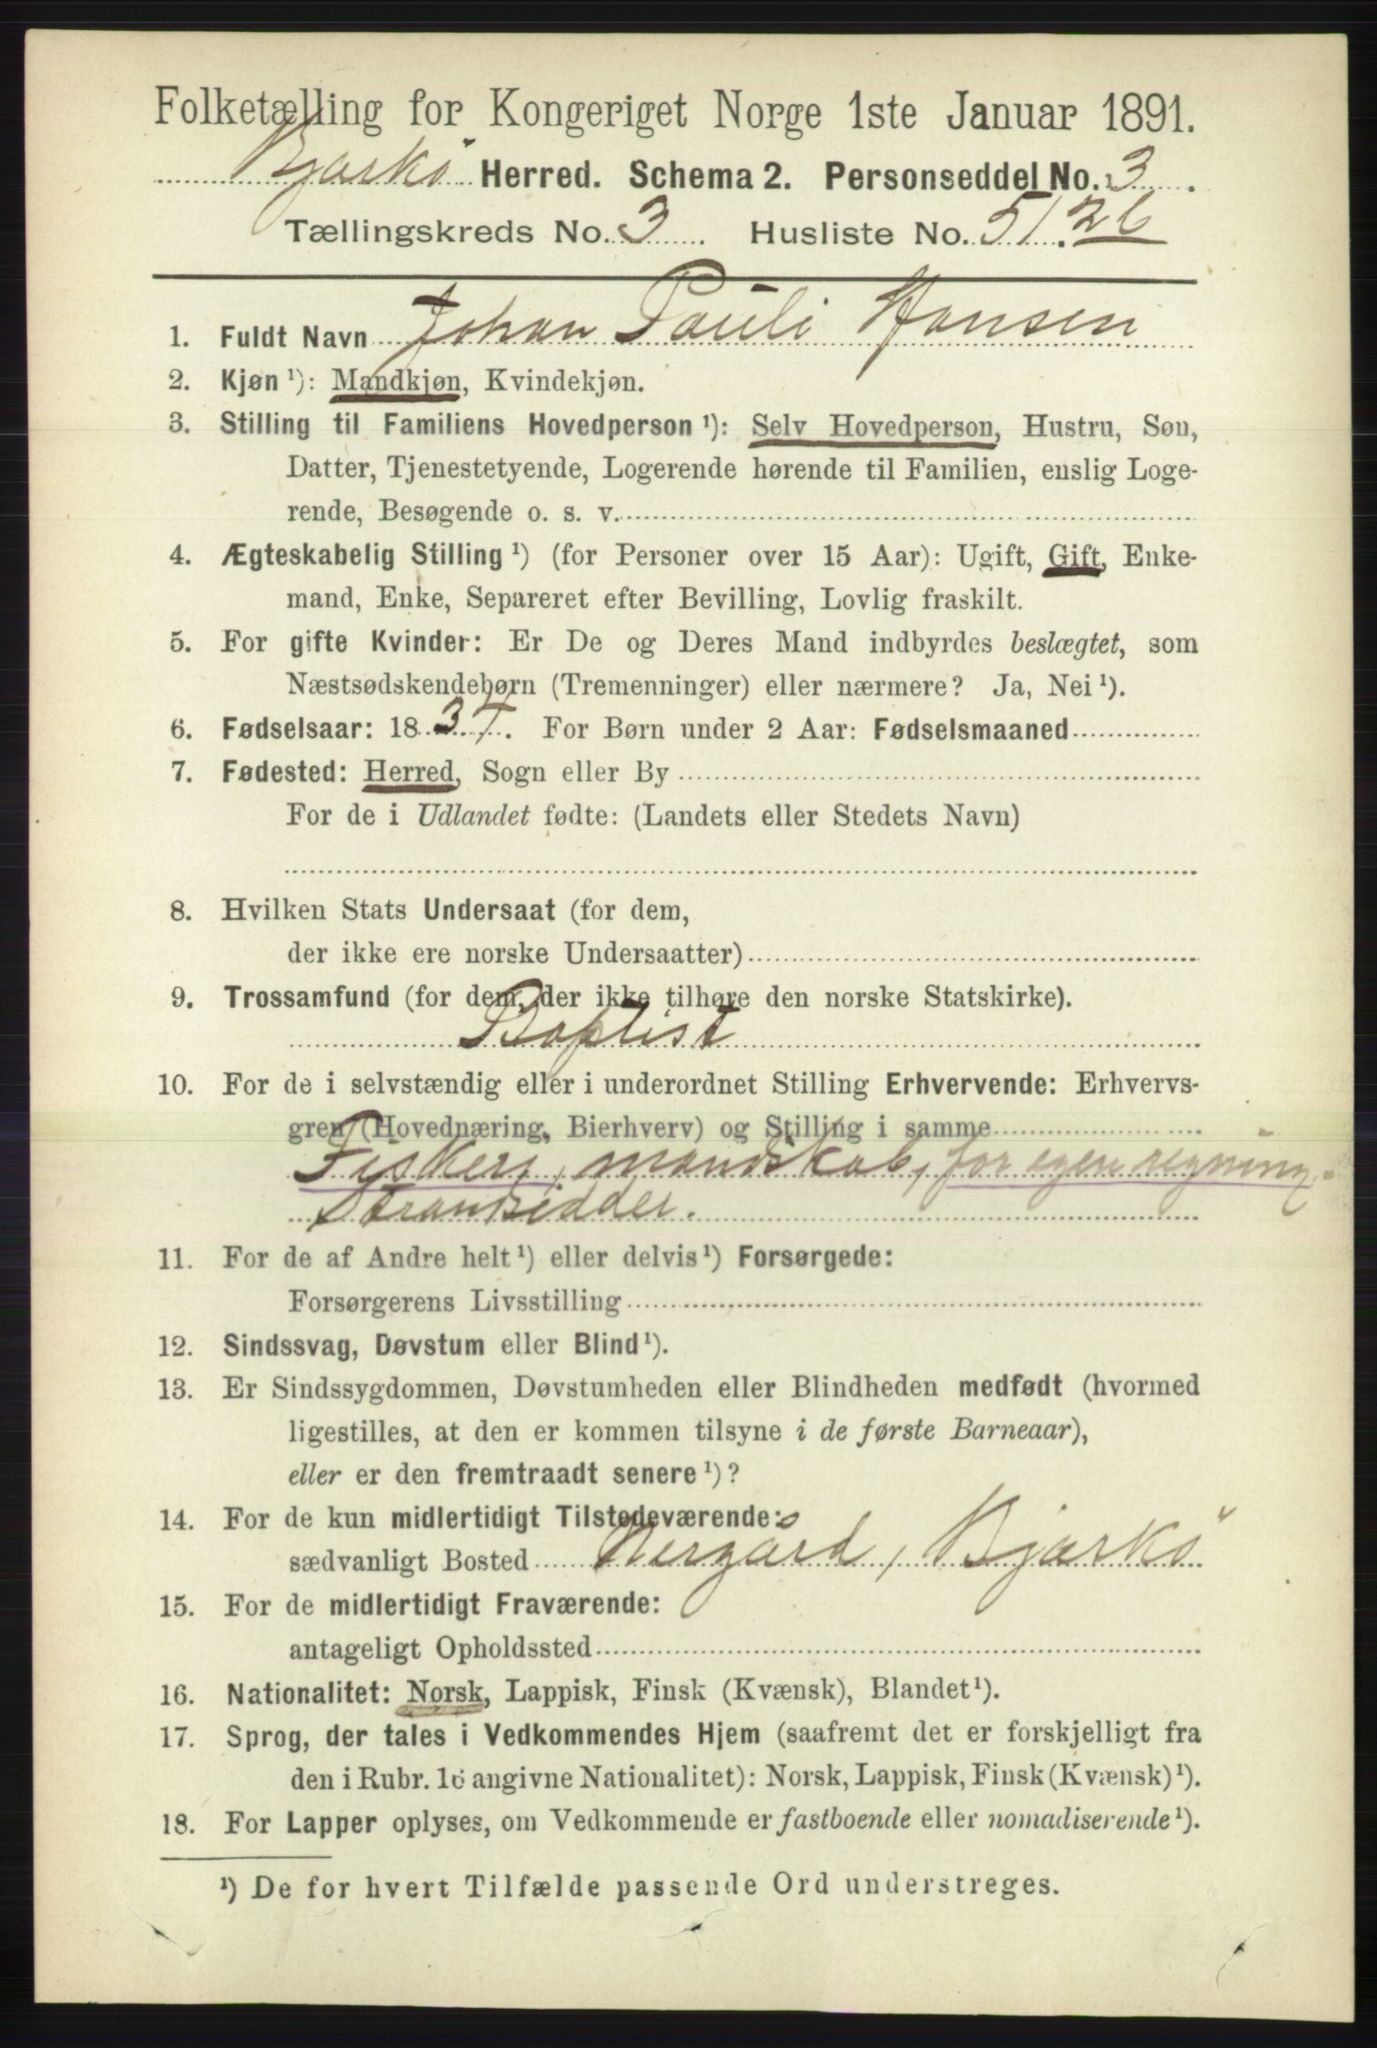 Folketælling for Kongeriget Norge 1ste Januar 1891.
Bjarkö Herred. Schema 2. Personseddel No. 3.
Tællingskreds No. 3. Husliste No. 51. 26
1. Fuldt Navn Johan Pauli Hansen
2. Kjøn ¹): Mandkjøn, Kvindekjøn.
3. Stilling til Familiens Hovedperson ¹): Selv Hovedperson, Hustru, Søn,
Datter, Tjenestetyende, Logerende hørende til Familien, enslig Loge-
rende, Besøgende o. s. v.
4. Ægteskabelig Stilling ¹) (for Personer over 15 Aar): Ugift, Gift, Enke-
mand, Enke, Separeret efter Bevilling, Lovlig fraskilt.
5. For gifte Kvinder: Er De og Deres Mand indbyrdes beslægtet, som
Næstsødskendebørn (Tremenninger) eller nærmere? Ja, Nei ¹).
6. Fødselsaar: 1837. For Børn under 2 Aar: Fødselsmaaned
7. Fødested: Herred, Sogn eller By
For de i Udlandet fødte: (Landets eller Stedets Navn)
8. Hvilken Stats Undersaat (for dem,
der ikke ere norske Undersaatter)
9. Trossamfund (for dem, der ikke tilhøre den norske Statskirke).
Baptist
10. For de i selvstændig eller i underordnet Stilling Erhvervende: Erhvervs-
gren (Hovednæring, Bierhverv) og Stilling i samme
Fiskeri, mandskab, for egen regning.
Strandsidder.
11. For de af Andre helt ¹) eller delvis ¹) Forsørgede:
Forsørgerens Livsstilling
12. Sindssvag, Døvstum eller Blind ¹).
13. Er Sindssygdommen, Døvstumheden eller Blindheden medfødt (hvormed
ligestilles, at den er kommen tilsyne i de første Barneaar),
eller er den fremtraadt senere ¹)?
14. For de kun midlertidigt Tilstedeværende:
sædvanligt Bosted Nergård, Bjarkö
15. For de midlertidigt Fraværende:
antageligt Opholdssted
16. Nationalitet: Norsk, Lappisk, Finsk (Kvænsk), Blandet ¹).
17. Sprog, der tales i Vedkommendes Hjem (saafremt det er forskjelligt fra
den i Rubr. 16 angivne Nationalitet): Norsk, Lappisk, Finsk (Kvænsk) ¹).
18. For Lapper oplyses, om Vedkommende er fastboende eller nomadiserende ¹).
¹) De for hvert Tilfælde passende Ord understreges.